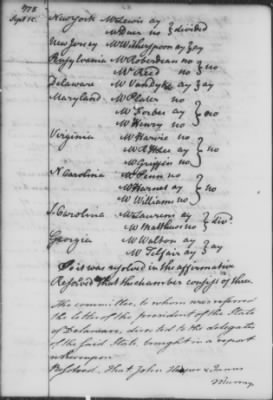 1778
Sept 15.
New York Mr Lewis ay
Mr Duer no } divided
New Jersey Mr Witherspoon ay } ay
Pensylvania Mr Roberdeau no
Mr Reed no } no
Delaware Mr Van Dyke ay } ay
Maryland Mr Plater no
Mr Forbes ay } no
Mr Henry no
Virginia Mr Harvie no
Mr R H Lee ay } no
Mr Griffin no
N Carolina Mr Penn no
Mr Harnet ay } no
Mr Williams no
S. Carolina Mr Laurens ay } div.
Mr Matthews no
Georgia Mr Walton ay
Mr Telfair ay } ay
So it was resolved in the affirmative
Resolved That the chamber consist of three.
The committee, to whom were referred
the letter of the president of the State
of Delaware, directed to the delegates
of the said State brought in a report
whereupon
Resolved, That John & James
Murray